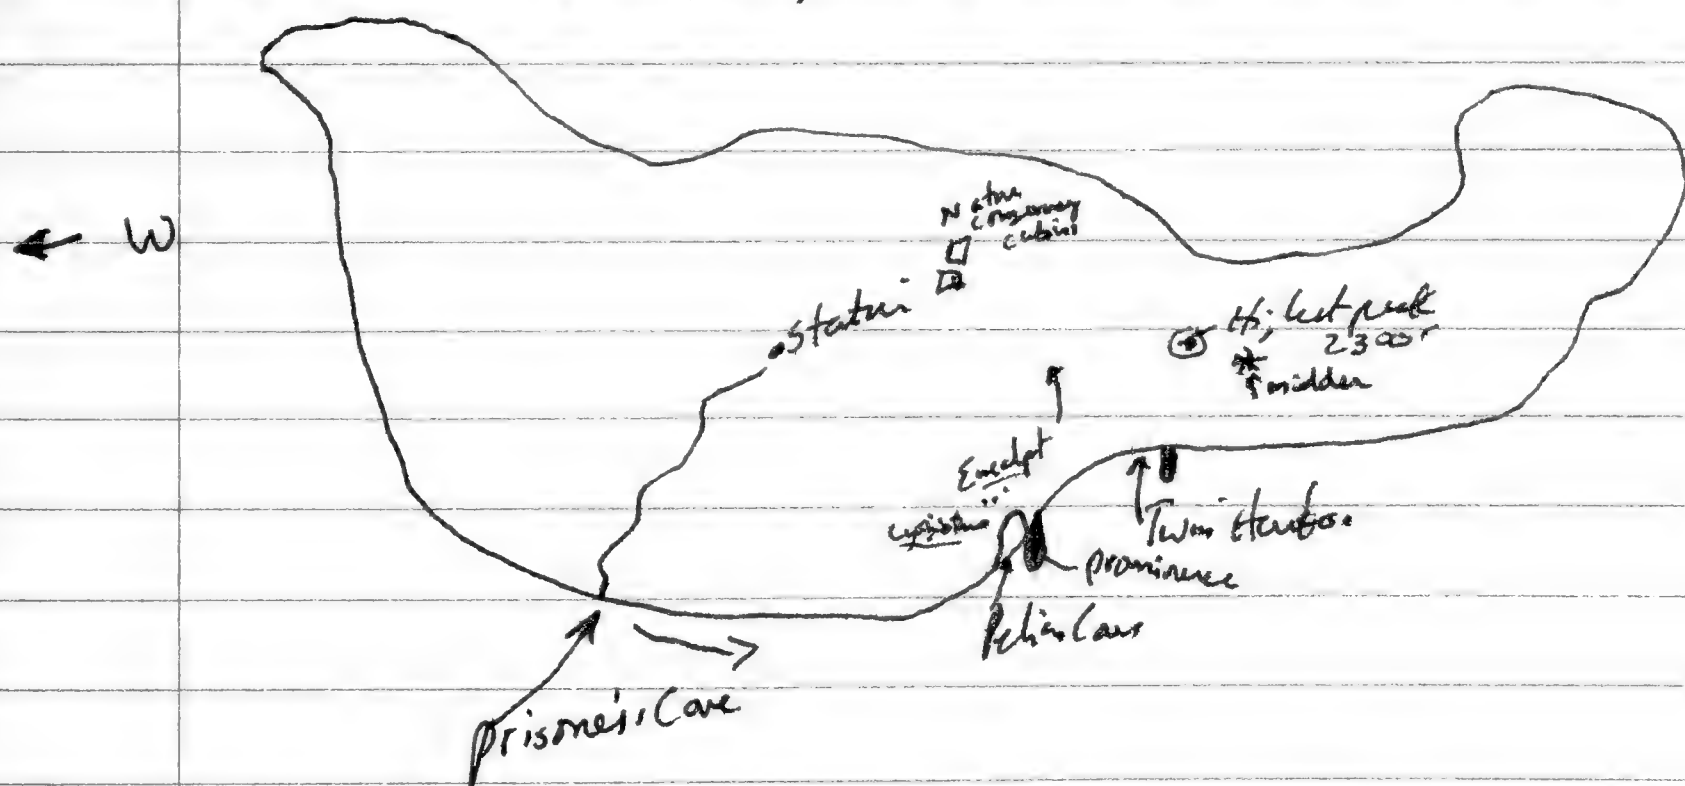 Nature
Conservancy
cabins
W
Station
Highest peak
2300'
midden
Eucalypt
Twin Harbors
prominence
Pelican Cove
Prisoner's Cove